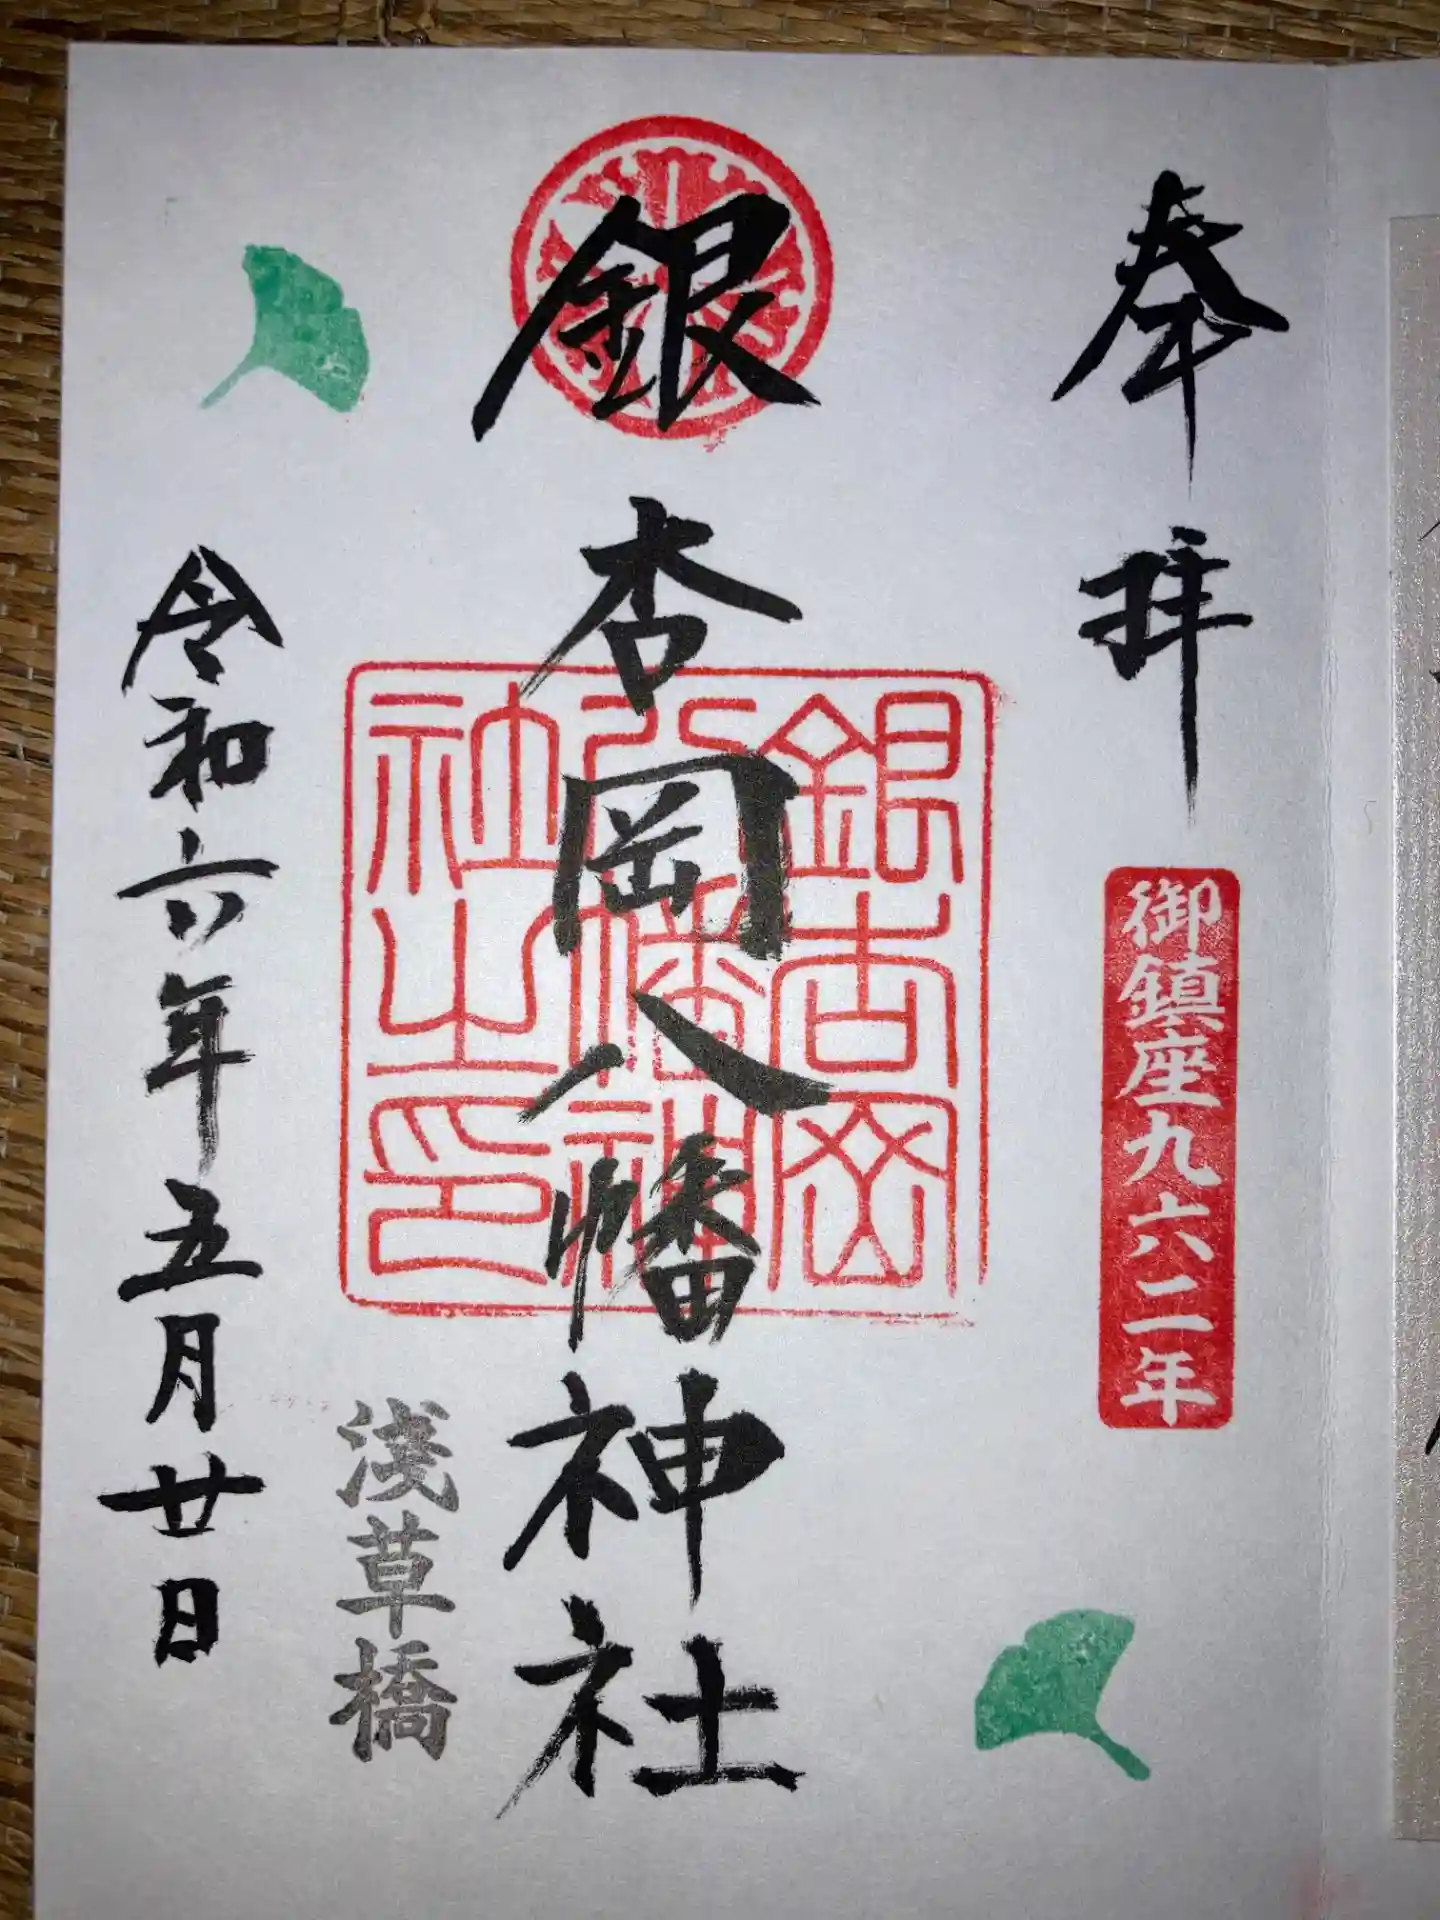 奉拝
御鎮座九六二年
銀杏岡八幡神社
銀杏岡
八幡神
社之印
浅草橋
令和六年五月廿日